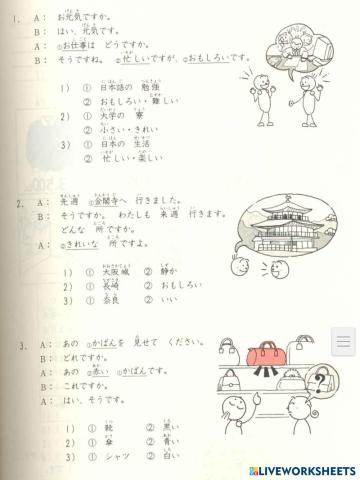 1. A： お元気ですか。
B： はい、元気です。
A： ①お仕事は どうですか。
B： そうですね。 ②忙しいですが、②おもしろいです。
1） ① 日本語の 勉強
② おもしろい・難しい
2） ① 大学の 寮
② 小さい・きれい
3） ① 日本の 生活
② 忙しい・楽しい
2. A： 先週 ①金閣寺へ 行きました。
B： そうですか。 わたしも 来週 行きます。
どんな 所ですか。
A： ②きれいな 所ですよ。
1） ① 大阪城 ② 静か
2） ① 長崎 ② おもしろい
3） ① 奈良 ② いい
3. A： あの ①かばんを 見せて ください。
B： どれですか。
A： あの ②赤い ①かばんです。
B： これですか。
A： はい、そうです。
1） ① 靴 ② 黒い
2） ① 傘 ② 青い
3） ① シャツ ② 白い
?
LIVEWORKSHEETS